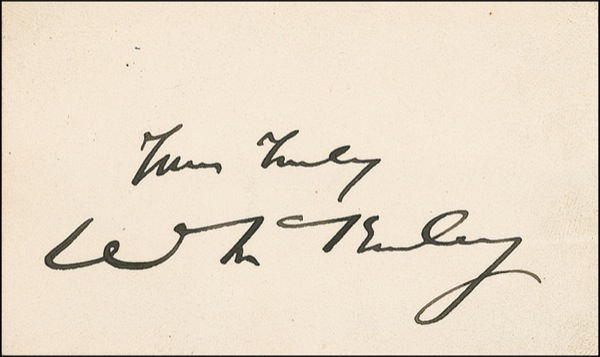 Yours Truly
W McKinley